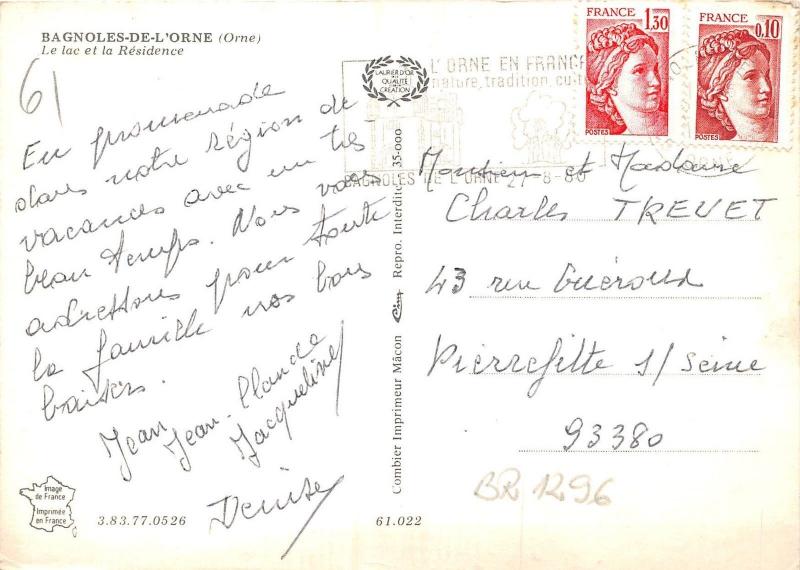 BAGNOLES-DE-L'ORNE (Orne)
Le lac et la Résidence
61
En promenade
dans notre région de
vacances avec un très
beau temps. Nous vous
adressons pour toute
la famille nos bons
baisers.
Jean
Jean-Claude
Jacqueline
Denise
Image
de France
Imprimée
en France
3.83.77.0526
61.022
Combier Imprimeur Mâcon Cim Repro. Interdite 35-000
LAURIER D'OR
DE LA
QUALITÉ
CRÉATION
L'ORNE EN FRANCE
nature, tradition, cult
BAGNOLES DE L'ORNE 27-8-80
FRANCE
1,30
POSTES
FRANCE
0,10
POSTES
Monsieur et Madame
Charles TREVET
43 rue Guéroux
Pierrefitte s/ Seine
93380
BR 1296